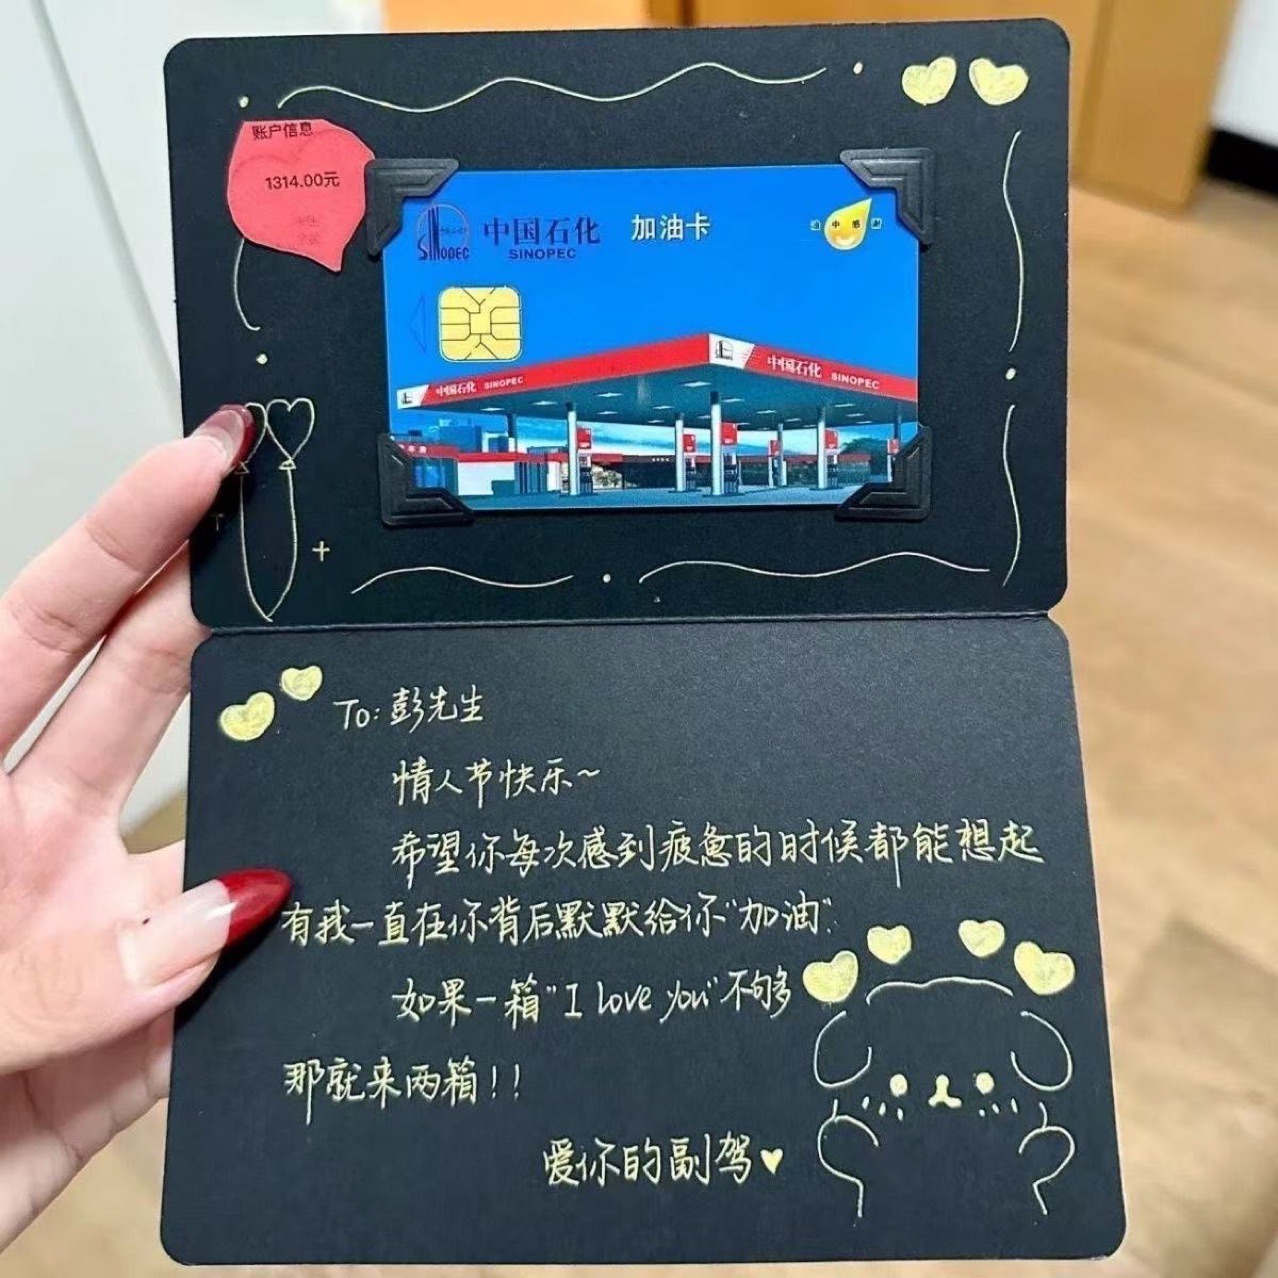 账户信息
1314.00元
SINOPEC
中国石化
SINOPEC
加油卡
中国石化 SINOPEC
中国石化 SINOPEC
To: 彭先生
情人节快乐~
希望你每次感到疲惫的时候都能想起
有我一直在你背后默默给你"加油".
如果一箱"I love you"不够
那就来两箱!!
爱你的副驾♥